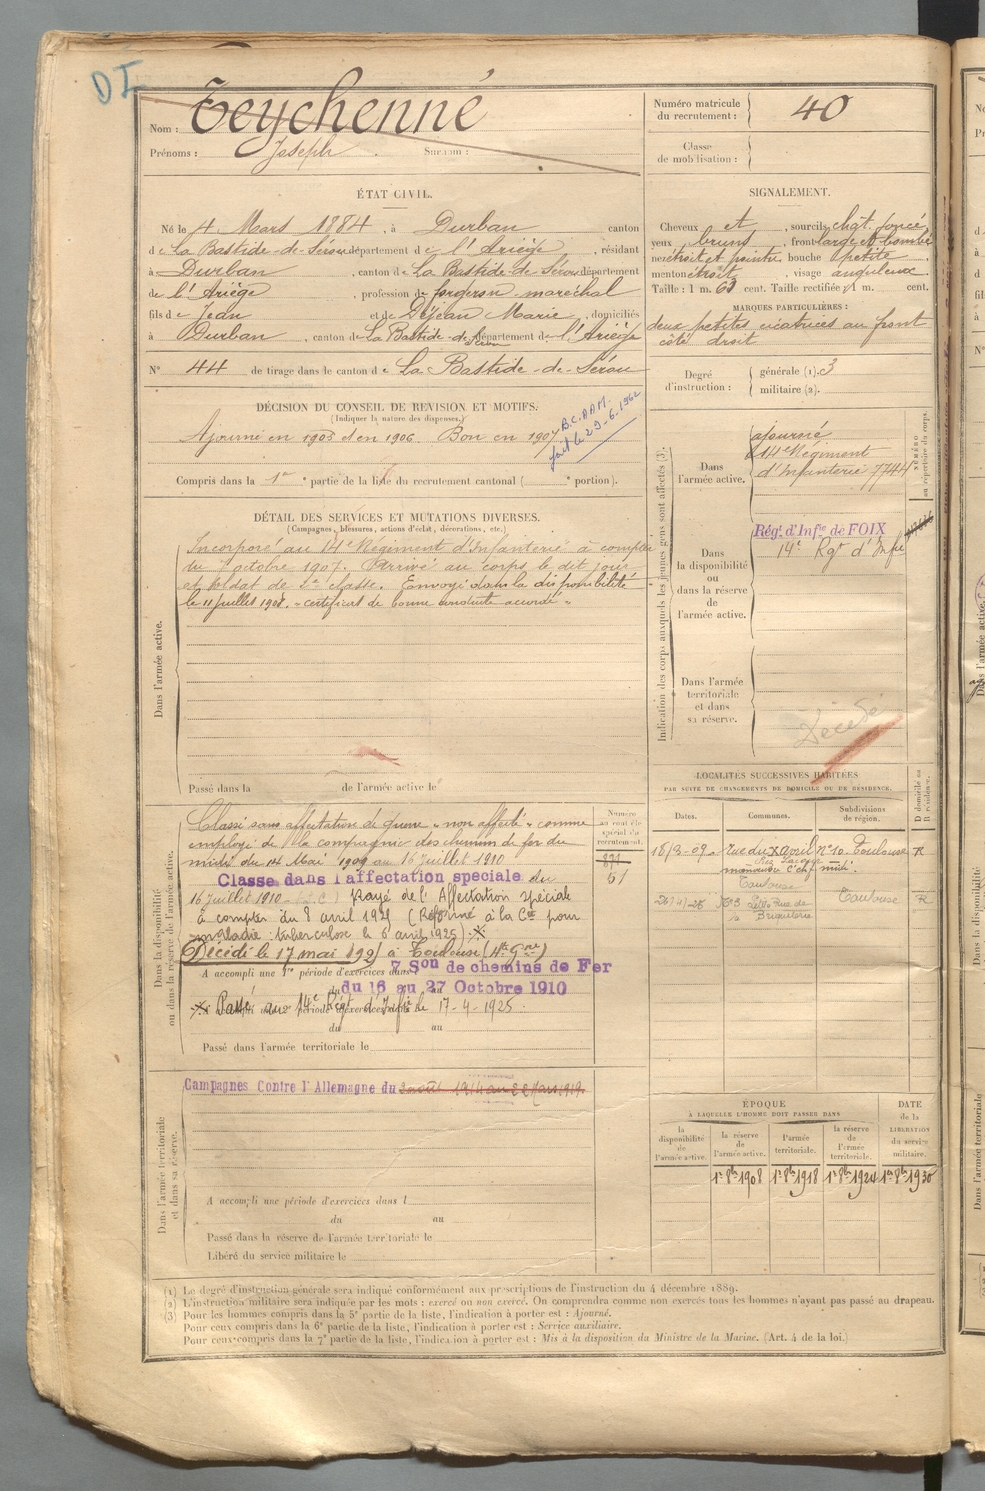 DI
Nom : Teychenné
Prénoms : Joseph Surnom :
Numéro matricule du recrutement : 40
Classe de mobilisation :
ÉTAT CIVIL.
Né le 4 Mars 1884, à Durban canton
de La Bastide-de-Sérou département de l'Ariège, résidant
à Durban, canton de La Bastide-de-Sérou département
de l'Ariège, profession de forgeron-maréchal
fils de Jean et de Dejean Marie, domiciliés
à Durban, canton de La Bastide-de-Sérou département de l'Ariège
N° 44 de tirage dans le canton de La Bastide-de-Sérou
SIGNALEMENT.
Cheveux et, sourcils chât. foncé
yeux bruns, front large et bombé
nez étroit et pointu, bouche petite
menton étroit, visage anguleux
Taille : 1 m. 63 cent. Taille rectifiée : 1 m. cent.
MARQUES PARTICULIÈRES :
deux petites cicatrices au front
côté droit
Degré d'instruction : générale (1). 3
militaire (2).
DÉCISION DU CONSEIL DE REVISION ET MOTIFS.
(Indiquer la nature des dispenses.)
Ajourné en 1905 et en 1906. Bon en 1907
B.C.A.A.M.
fait le 29-6-1962
Compris dans la 1re partie de la liste du recrutement cantonal ( portion).
DÉTAIL DES SERVICES ET MUTATIONS DIVERSES.
(Campagnes, blessures, actions d'éclat, décorations, etc.)
Dans l'armée active.
Incorporé au 14e Régiment d'Infanterie à compter
du 7 octobre 1907. Arrivé au corps le dit jour
et soldat de 2e classe. Envoyé dans la disponibilité
le 11 juillet 1908. "certificat de bonne conduite accordé"
Passé dans la de l'armée active le
Indication des corps auxquels les jeunes gens sont affectés (3).
NUMÉRO au répertoire du corps.
Dans l'armée active.
ajourné
14e Régiment
d'Infanterie 7744
Dans la disponibilité ou dans la réserve de l'armée active.
Régt. d'Infie de FOIX
14e Rgt d'Infie
Dans l'armée territoriale et dans sa réserve.
Décédé
Dans la disponibilité
ou dans la réserve de l'armée active.
Numéro au contrôle spécial du recrutement.
871
61
Classé sans affectation de guerre "non affecté" comme
employé de la compagnie des chemins de fer du
midi du 14 Mai 1909 au 16 juillet 1910
Classe dans l'affectation speciale du
16 juillet 1910 Rayé de l'Affectation Spéciale
à compter du 8 avril 1925 (Réformé à la Cie pour
maladie : tuberculose le 6 avril 1925)
Décédé le 17 mai à Toulouse (Hte Gne)
A accompli une 1re période d'exercices dans l 7 Son de chemins de Fer
du 16 au 27 Octobre 1910
Passé au 14e Régt d'Infie le 17-4-1925
A accompli une 2e période d'exercices dans l
du au
Passé dans l'armée territoriale le
Dans l'armée territoriale
et dans sa réserve.
Campagnes Contre l'Allemagne du 2 août 1914 au 22 Mars 1919.
A accompli une période d'exercices dans l
du au
Passé dans la réserve de l'armée territoriale le
Libéré du service militaire le
LOCALITÉS SUCCESSIVES HABITÉES
PAR SUITE DE CHANGEMENTS DE DOMICILE OU DE RÉSIDENCE.
Dates. Communes. Subdivisions de région. D domicile ou R résidence.
18/3-09 rue du X avril n° 10. Toulouse R
Toulouse
Rue de la Briqueterie Toulouse R
ÉPOQUE
À LAQUELLE L'HOMME DOIT PASSER DANS
la disponibilité de l'armée active. la réserve de l'armée active. l'armée territoriale. la réserve de l'armée territoriale. DATE de la LIBÉRATION du service militaire.
1er 8bre 1908 1er 8bre 1918 1er 8bre 1924 1er 8bre 1930
(1) Le degré d'instruction générale sera indiqué conformément aux prescriptions de l'instruction du 4 décembre 1889.
(2) L'instruction militaire sera indiquée par les mots : exercé ou non exercé. On comprendra comme non exercés tous les hommes n'ayant pas passé au drapeau.
(3) Pour les hommes compris dans la 5e partie de la liste, l'indication à porter est : Ajourné.
Pour ceux compris dans la 6e partie de la liste, l'indication à porter est : Service auxiliaire.
Pour ceux compris dans la 7e partie de la liste, l'indication à porter est : Mis à la disposition du Ministre de la Marine. (Art. 4 de la loi.)